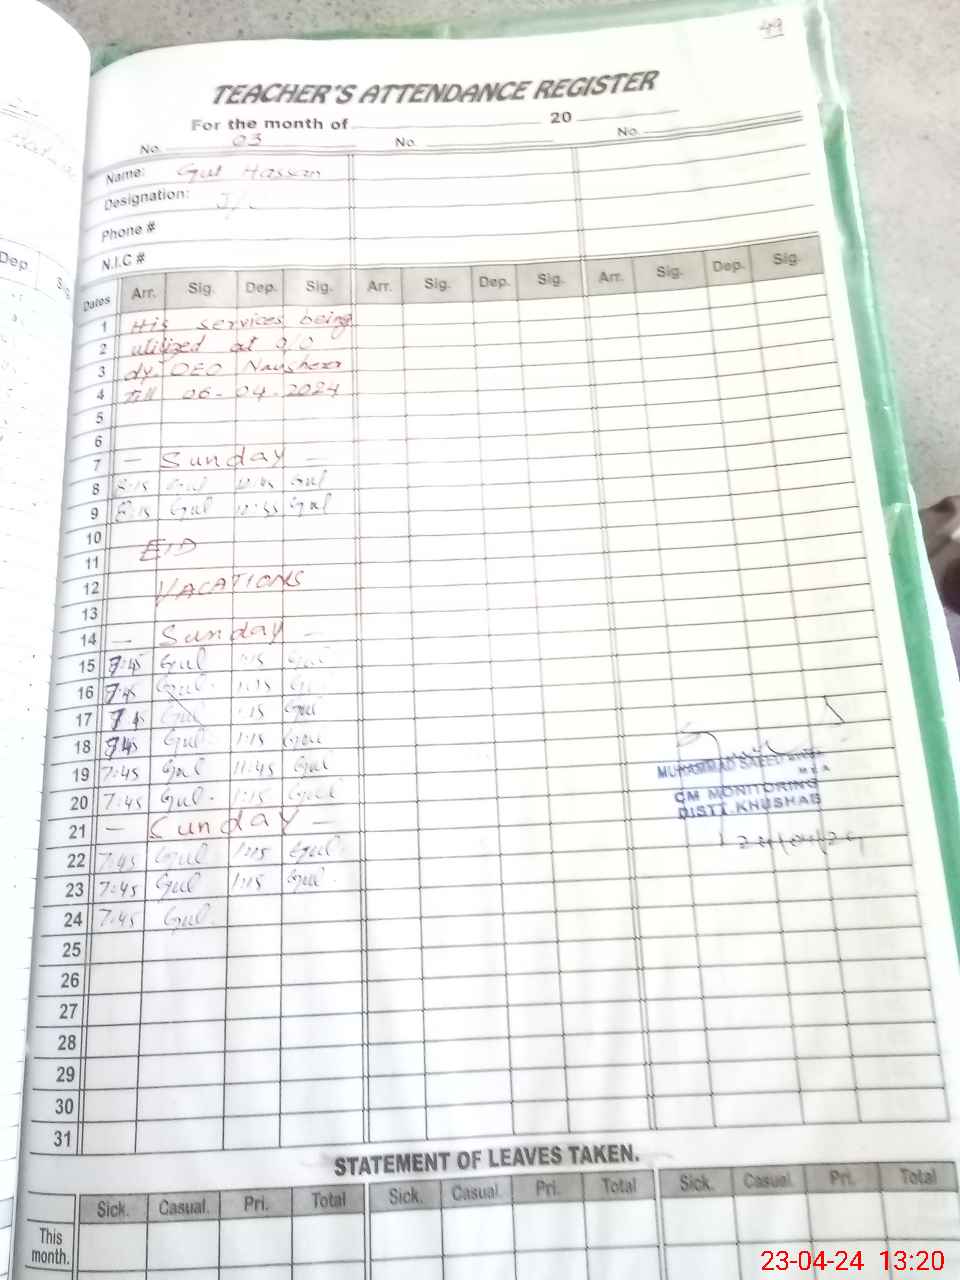 49
TEACHER'S ATTENDANCE REGISTER
For the month of 20
No. 03 No. No.
Name: Gul Hassan
Designation:
Phone #
N.I.C #
Dates Arr. Sig. Dep. Sig. Arr. Sig. Dep. Sig. Arr. Sig. Dep. Sig.
1 His services being
2 utilized at O/O
3 dy. DEO Naushera
4 till 06-04-2024
5
6
7 - Sunday -
8 8:15 Gul Gul
9 8:15 Gul Gul
10 EID
11
12 VACATIONS
13
14 - Sunday -
15 7:45 Gul 1:15 Gul
16 7:45 Gul 1:15 Gul
17 7:45 Gul 1:15 Gul
18 7:45 Gul 1:15 Gul
19 7:45 Gul 11:45 Gul
20 7:45 Gul 1:15 Gul
21 - Sunday -
22 7:45 Gul 1:15 Gul
23 7:45 Gul 1:15 Gul
24 7:45 Gul
25
26
27
28
29
30
31
MUHAMMAD SAEED
MEA
CM MONITORING
DISTT. KHUSHAB
STATEMENT OF LEAVES TAKEN.
Sick. Casual. Pri. Total Sick. Casual. Pri. Total Sick. Casual. Pri. Total
This month.
23-04-24 13:20